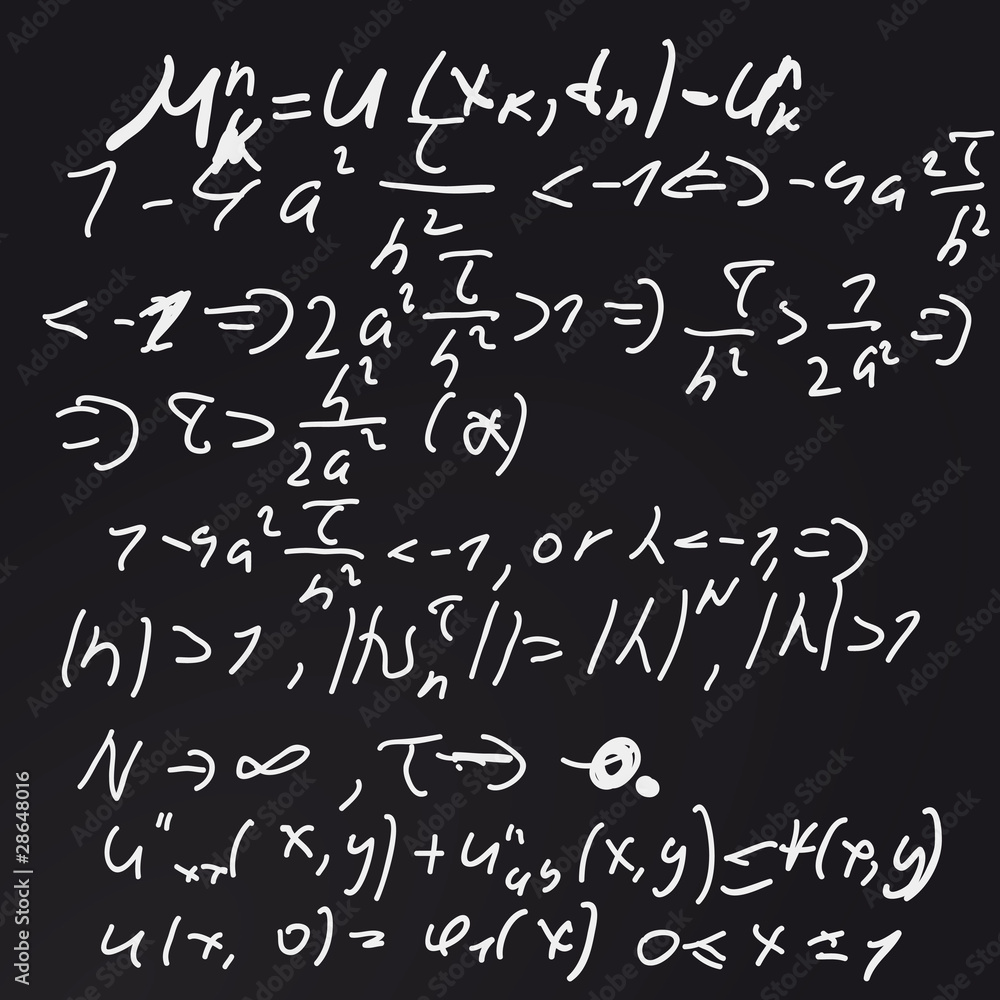 μₖⁿ = u(xₖ, tₙ) - uₖⁿ
1 - 4a² τ/h² < -1 ⇔ -4a² τ/h²
< -2 ⇒ 2a² τ/h² > 1 ⇒ τ/h² > 1/2a² ⇒
⇒ τ > h²/2a² (*)
1 - 4a² τ/h² < -1, or λ < -1, ⇒
|λ| > 1, ||ₙ^τ|| = |λ|ᴺ, |λ| > 1
N → ∞, τ → 0.
u''ₓₓ(x, y) + u''(x, y) ≤ (x, y)
u(x, 0) = φ₁(x) 0 ≤ x ≤ 1
Adobe Stock | #28648016